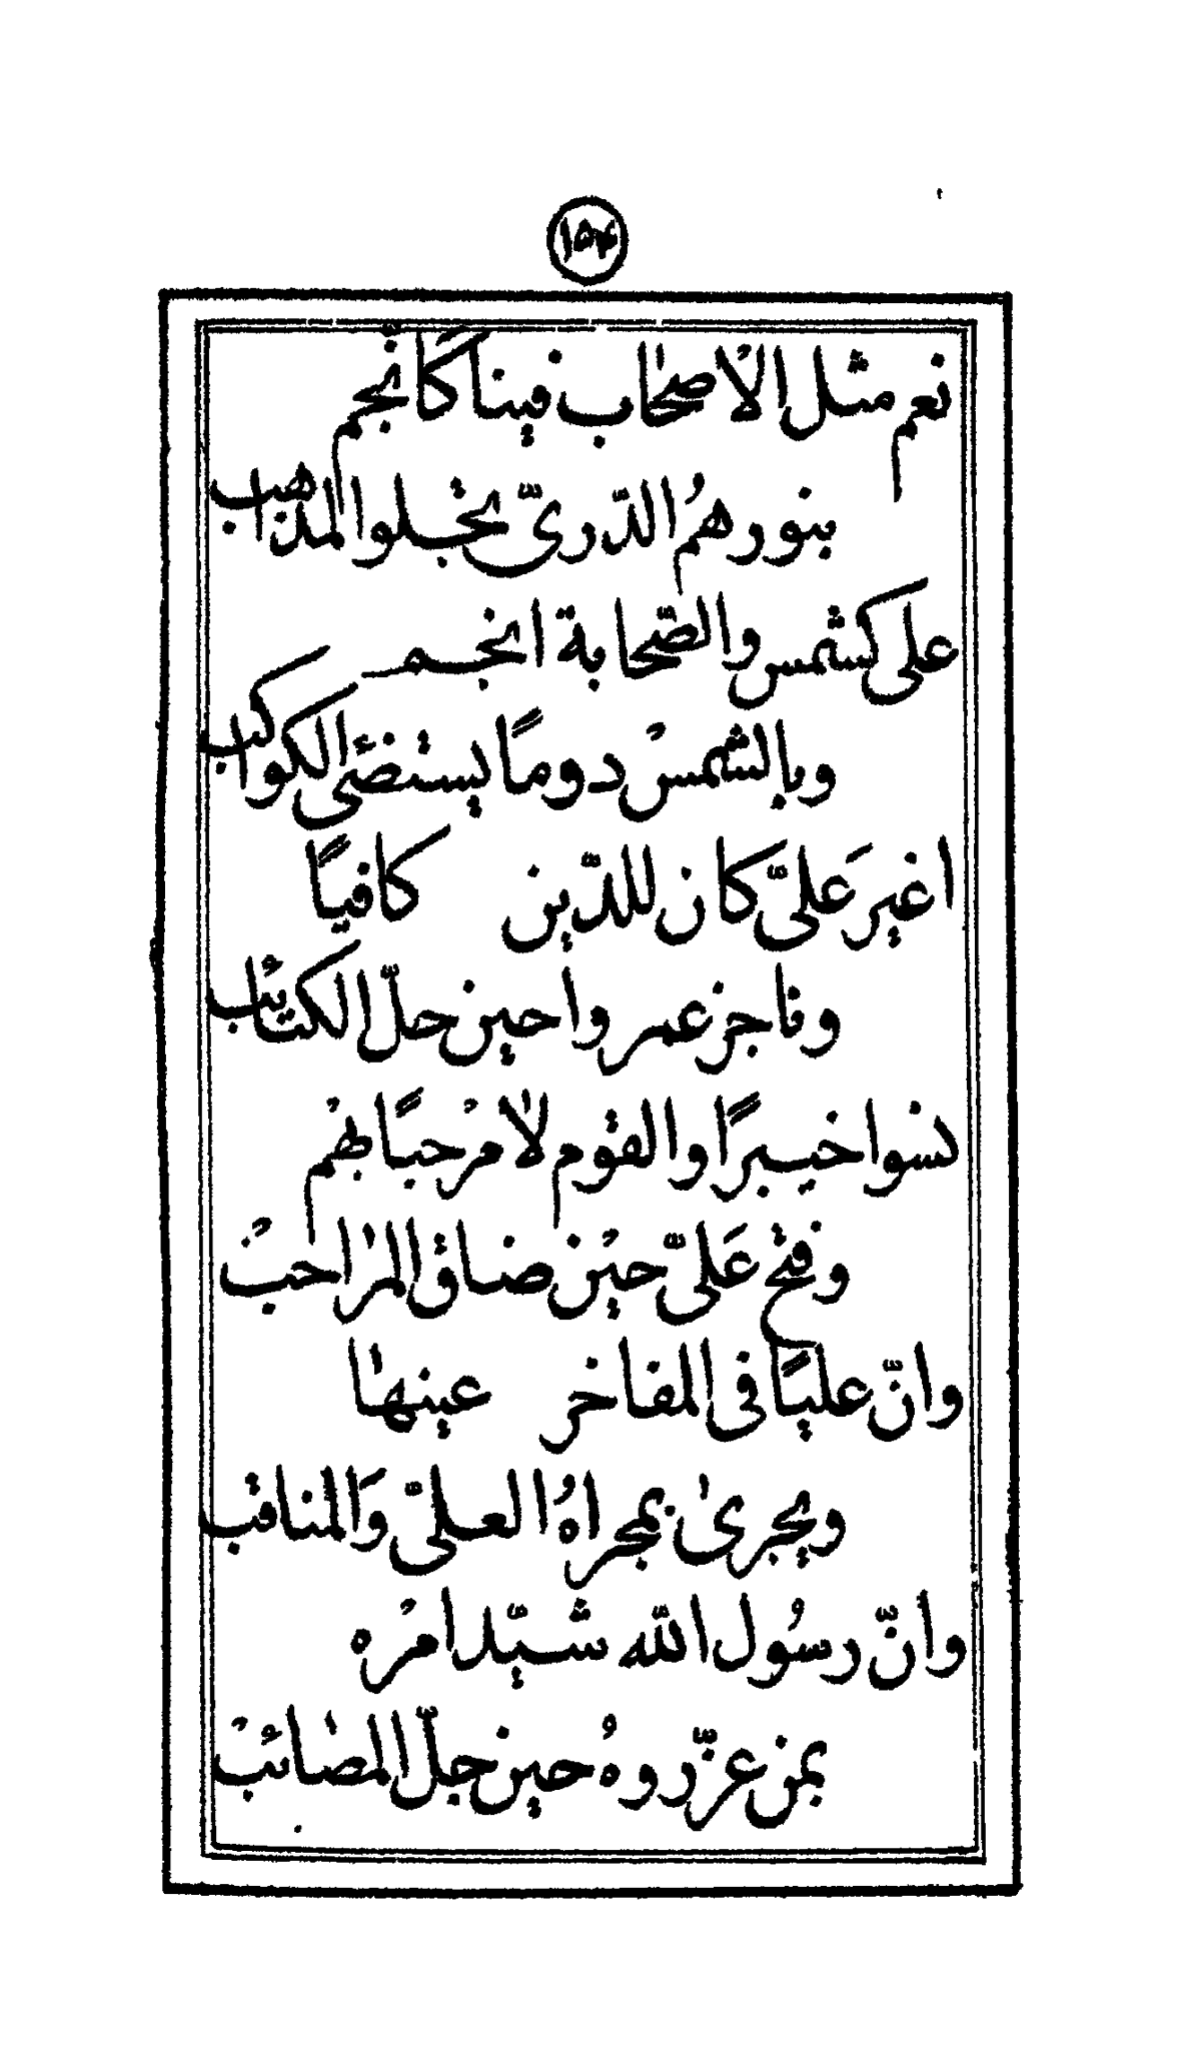 ۱۵۴
نعم مثل الاصحاب فينا كأنجم
بنورهمُ الدّرىّ يخلوا المذاهب
على كشمس والصّحابة انجم
وبالشمسْ دومًا يستضئى الكواكب
اغير عَلىّ كان للدّين كافيًا
وناجز عمروا حين حلّ الكتائب
نسوا خيبرًا والقوم لا مرْحبًا بهْم
وفتح عَلىّ حيْن ضاق المراحبْ
وانّ عليًا فى المفاخر عينها
ويجرى بمجراهُ العلىّ وَالمناقب
وانّ رسُول اللّه شيّد امْره
بمن عزّروهُ حين جلّ المصائبْ